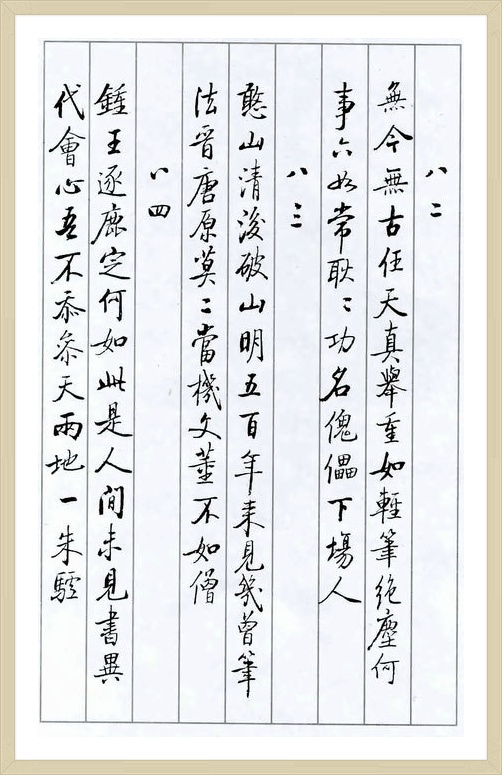 八二
無今無古任天真舉重如輕筆絶塵何
事六如常耿〻功名傀儡下場人
八三
憨山清後破山明五百年来見幾曾筆
法晋唐原莫二當機文董不如僧
八四
鍾王逐鹿定何如此是人間未見書異
代會心吾不忝參天兩地一朱驢